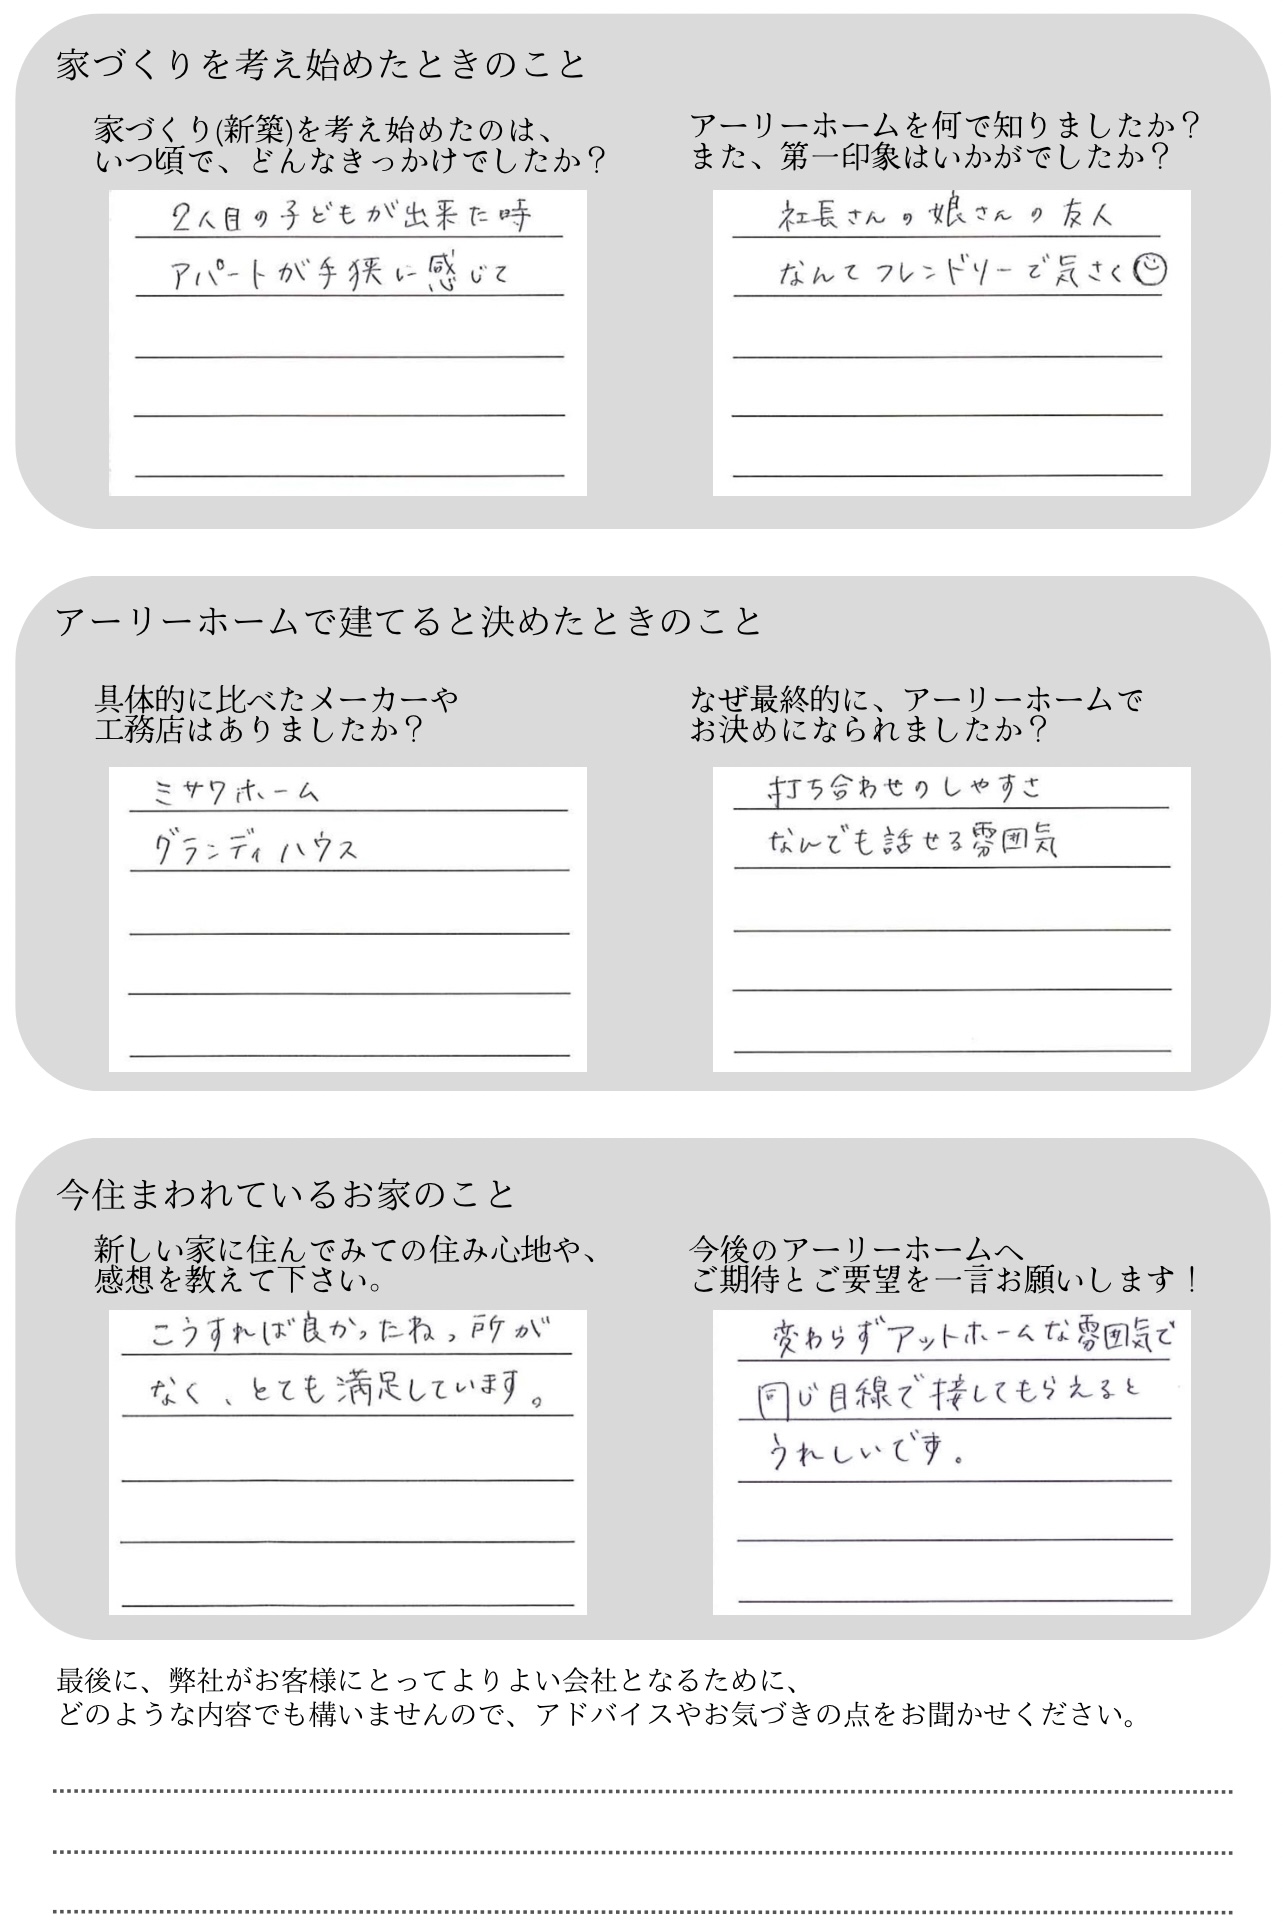 家づくりを考え始めたときのこと
家づくり(新築)を考え始めたのは、
いつ頃で、どんなきっかけでしたか？
2人目の子どもが出来た時
アパートが手狭に感じて
アーリーホームを何で知りましたか？
また、第一印象はいかがでしたか？
社長さんの娘さんの友人
なんてフレンドリーで気さく
アーリーホームで建てると決めたときのこと
具体的に比べたメーカーや
工務店はありましたか？
ミサワホーム
グランディハウス
なぜ最終的に、アーリーホームで
お決めになられましたか？
打ち合わせのしやすさ
なんでも話せる雰囲気
今住まわれているお家のこと
新しい家に住んでみての住み心地や、
感想を教えて下さい。
こうすれば良かったねっ所が
なく、とても満足しています。
今後のアーリーホームへ
ご期待とご要望を一言お願いします！
変わらずアットホームな雰囲気で
同じ目線で接してもらえると
うれしいです。
最後に、弊社がお客様にとってよりよい会社となるために、
どのような内容でも構いませんので、アドバイスやお気づきの点をお聞かせください。